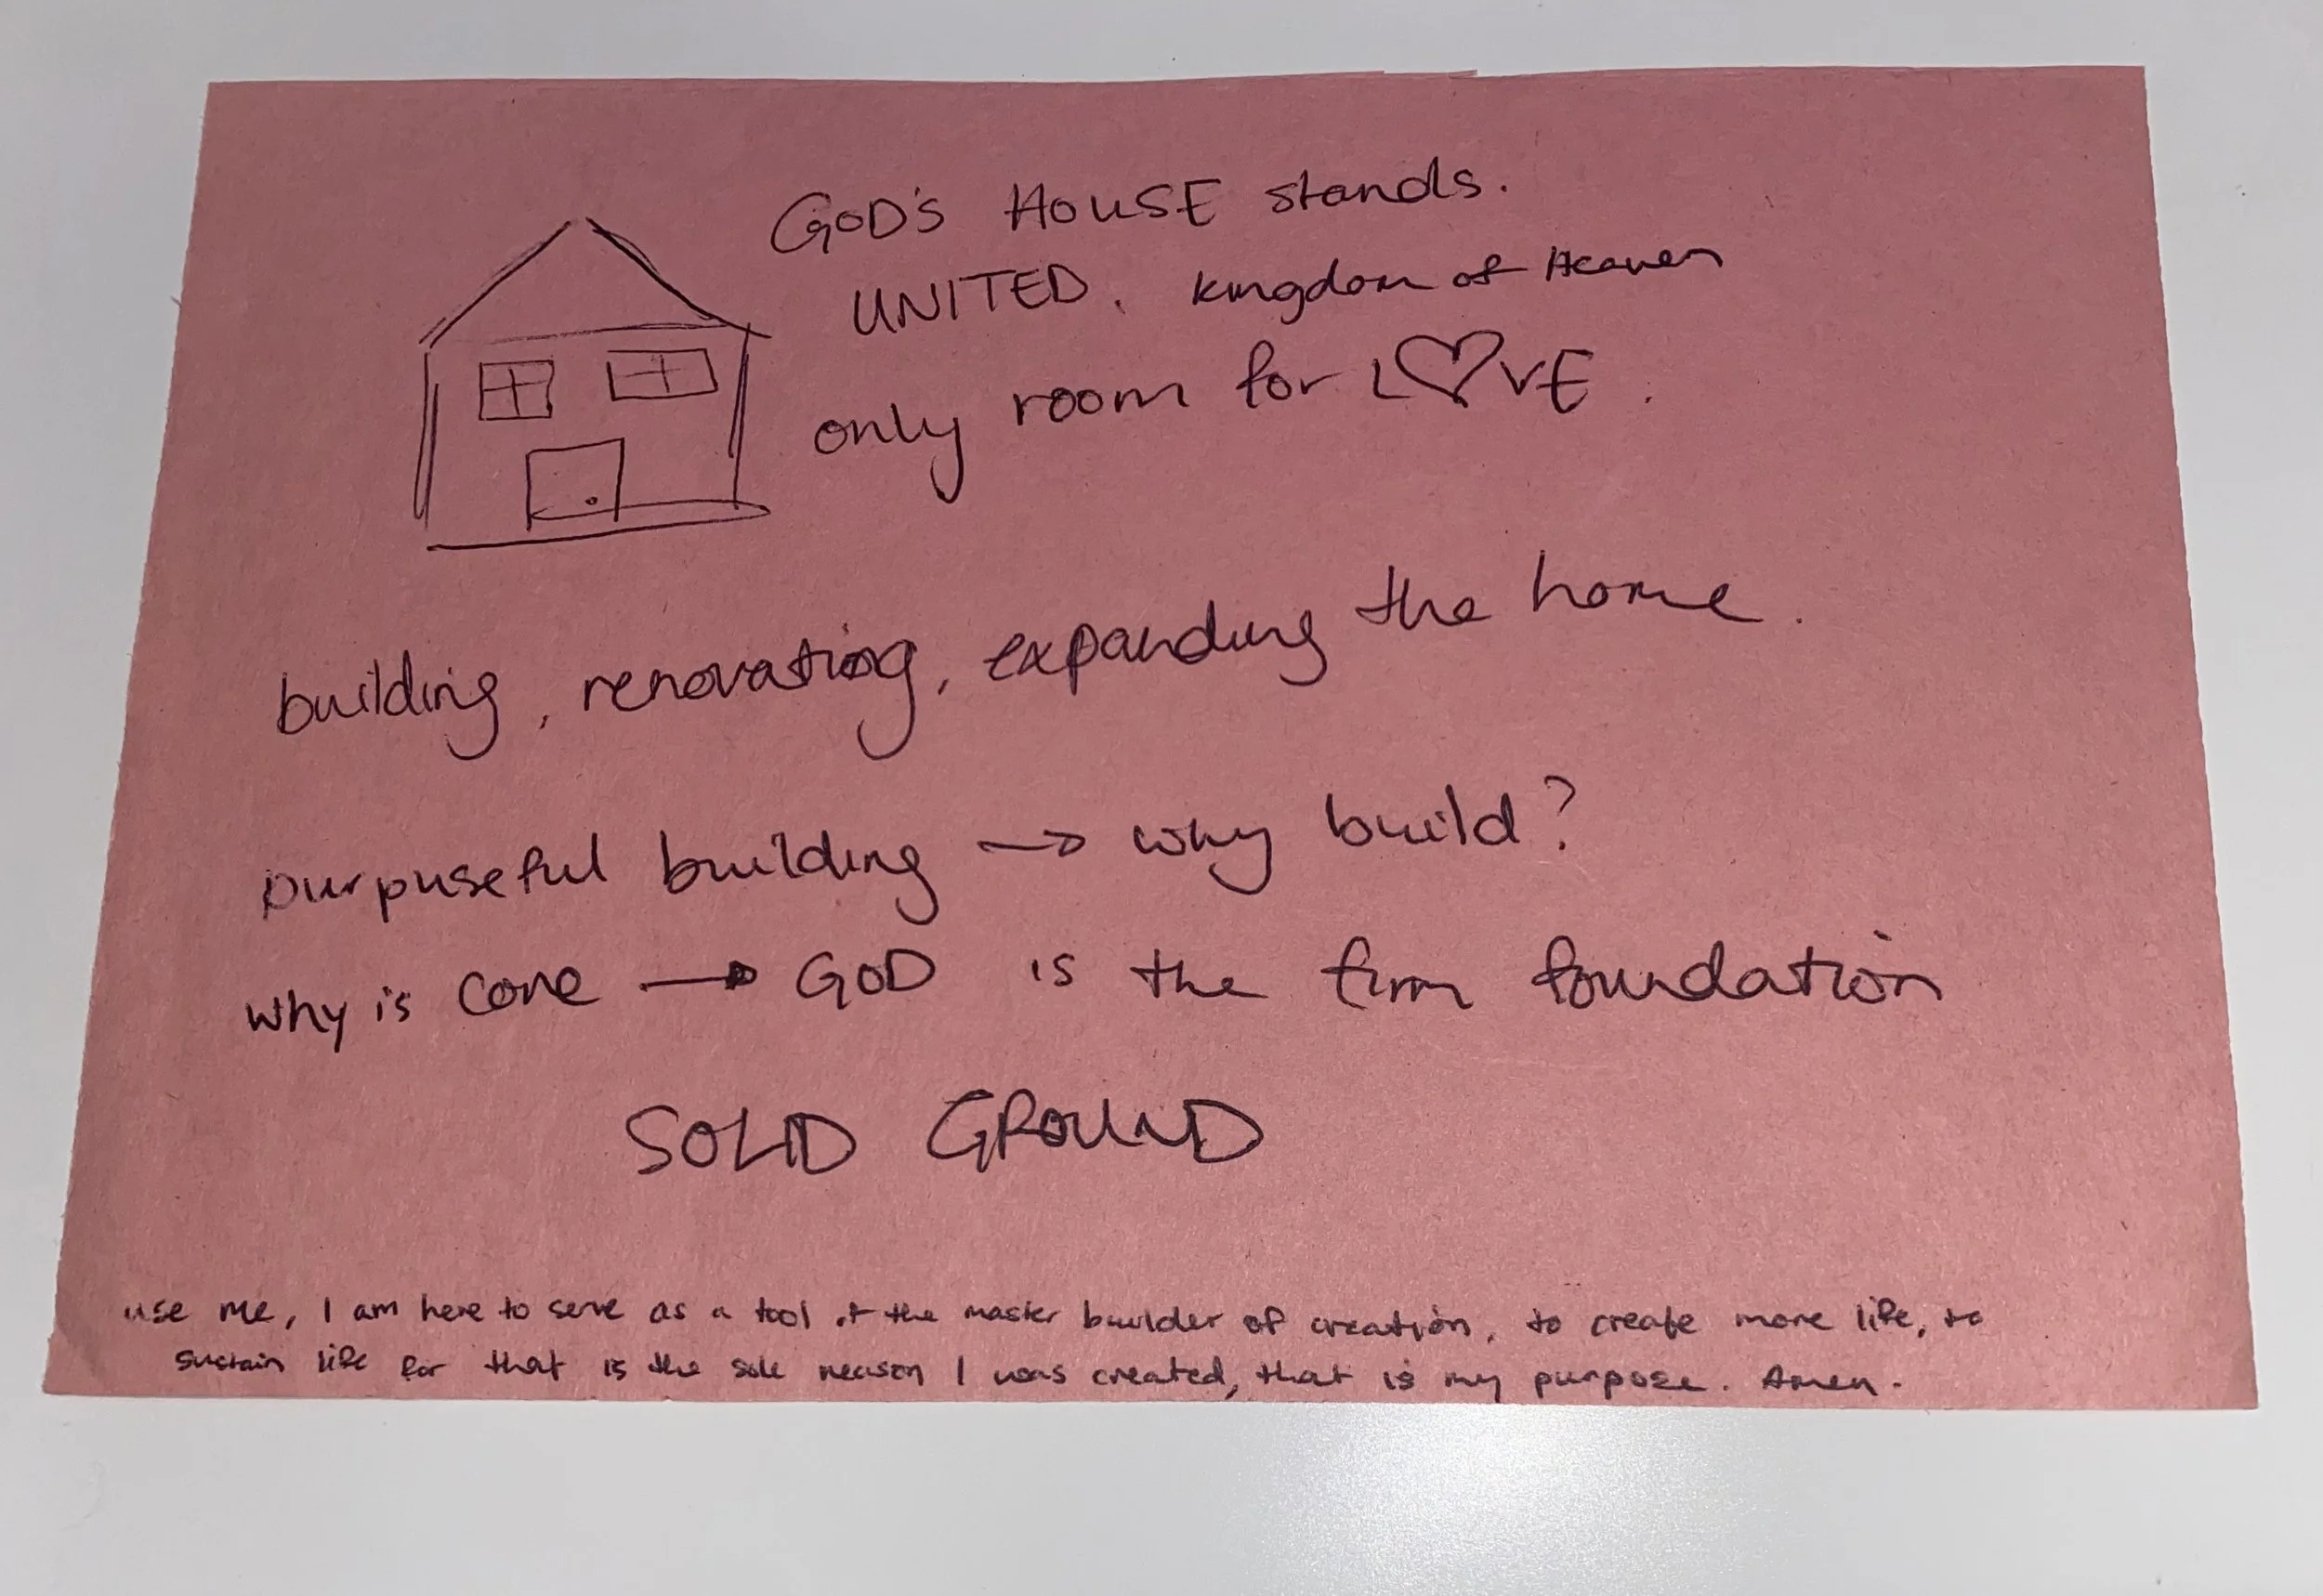 GOD'S HOUSE stands.
UNITED. Kingdom of Heaven
only room for L♡VE.
building, renovating, expanding the home.
purpuseful building → why build?
why is core → GOD is the firm foundation
SOLID GROUND
use me, I am here to serve as a tool of the master builder of creation, to create more life, to
sustain life for that is the sole reason I was created, that is my purpose. Amen.